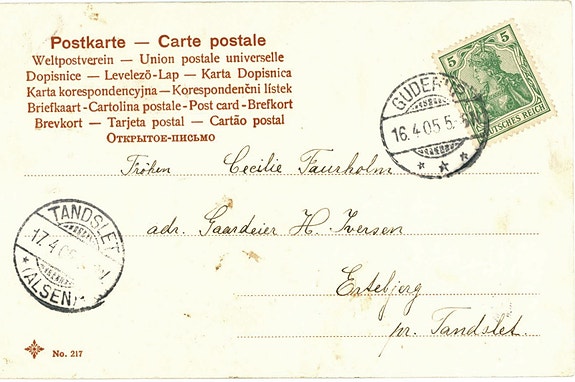 Postkarte — Carte postale
Weltpostverein — Union postale universelle
Dopisnice — Levelező-Lap — Karta Dopisnica
Karta korespondencyjna — Korespondenční lístek
Briefkaart - Cartolina postale - Post card - Brefkort
Brevkort — Tarjeta postal — Cartão postal
Открытое-письмо
5 5
DEUTSCHES REICH
16.4.05.5-
Fröken Cecilie Faurholm
adr. Gaardeier H. Iversen
Ertebjerg
pr. Tandslet.
TANDSLET
17.4.05
* (ALSEN) *
No. 217